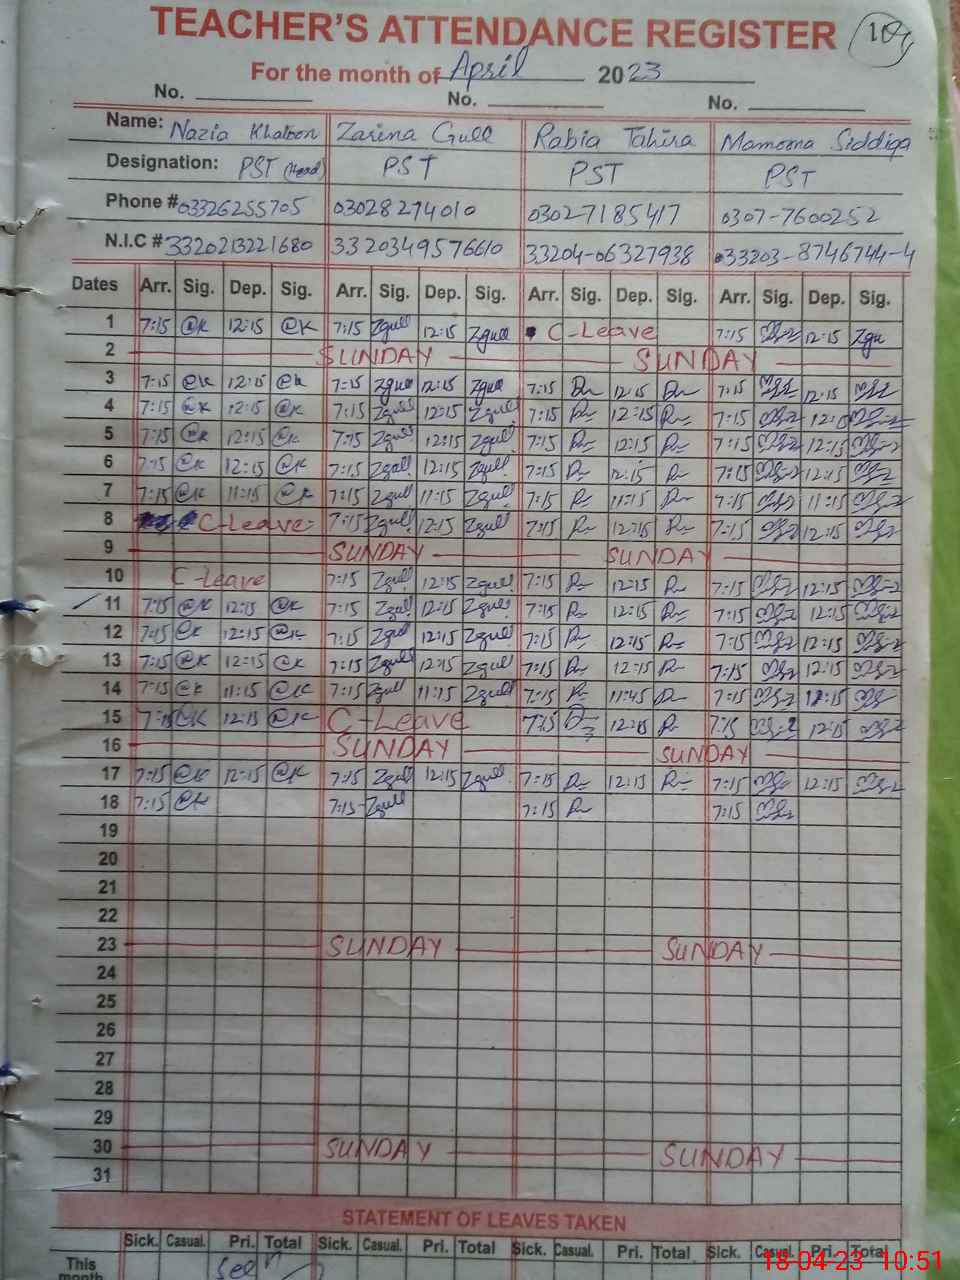 TEACHER'S ATTENDANCE REGISTER
For the month of April 2023
No. No. No.
Name: Nazia Khatoon Zarina Gull Rabia Tahira Mamoona Siddiqa
Designation: PST (Head) PST PST PST
Phone # 03326255705 03028274010 03027185417 0307-7600252
N.I.C # 3320213221680 3320349576610 33204-06327938 33203-8746744-4
Dates Arr. Sig. Dep. Sig. Arr. Sig. Dep. Sig. Arr. Sig. Dep. Sig. Arr. Sig. Dep. Sig.
1 7:15 @K 12:15 @K 7:15 Zgull 12:15 Zgull C-Leave 7:15 12:15 Zgu
2 SUNDAY SUNDAY
3 7:15 @K 12:15 @K 7:15 Zgull 12:15 Zgull 7:15 12:15 7:15 12:15
4 7:15 @K 12:15 @K 7:15 Zgull 12:15 Zgull 7:15 12:15 7:15
5 7:15 @K 12:15 @K 7:15 Zgull 12:15 Zgull 7:15 12:15 7:15 12:15
6 7:15 @K 12:15 @K 7:15 Zgull 12:15 Zgull 7:15 12:15 7:15 12:15
7 7:15 @K 11:15 @K 7:15 Zgull 11:15 Zgull 7:15 11:15 7:15 11:15
8 C-Leave 7:15 Zgull 12:15 Zgull 7:15 12:15 7:15 12:15
9 SUNDAY SUNDAY
10 C-Leave 7:15 Zgull 12:15 Zgull 7:15 12:15 7:15 12:15
11 7:15 @K 12:15 @K 7:15 Zgull 12:15 Zgull 7:15 12:15 7:15 12:15
12 7:15 @K 12:15 @K 7:15 Zgull 12:15 Zgull 7:15 12:15 7:15 12:15
13 7:15 @K 12:15 @K 7:15 Zgull 12:15 Zgull 7:15 12:15 7:15 12:15
14 7:15 @K 11:15 @K 7:15 Zgull 11:15 Zgull 7:15 11:45 7:15
15 7:15 @K 12:15 @K C-Leave 7:15 12:15 7:15 12:15
16 SUNDAY SUNDAY
17 7:15 @K 12:15 @K 7:15 Zgull 12:15 Zgull 7:15 12:15 7:15 12:15
18 7:15 @K 7:15 Zgull 7:15 7:15
19
20
21
22
23 SUNDAY SUNDAY
24
25
26
27
28
29
30 SUNDAY SUNDAY
31
STATEMENT OF LEAVES TAKEN
Sick. Casual. Pri. Total Sick. Casual. Pri. Total Sick. Casual. Pri. Total Sick. Casual. Pri. Total
This month
18-04-23 10:51